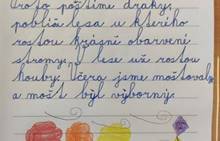 Proto pouštíme draky,
poblíž lesa u kterého
rostou krásně obarvené
stromy. V lese už rostou
houby. Včera jsme moštovaly
a mošt byl výborný.